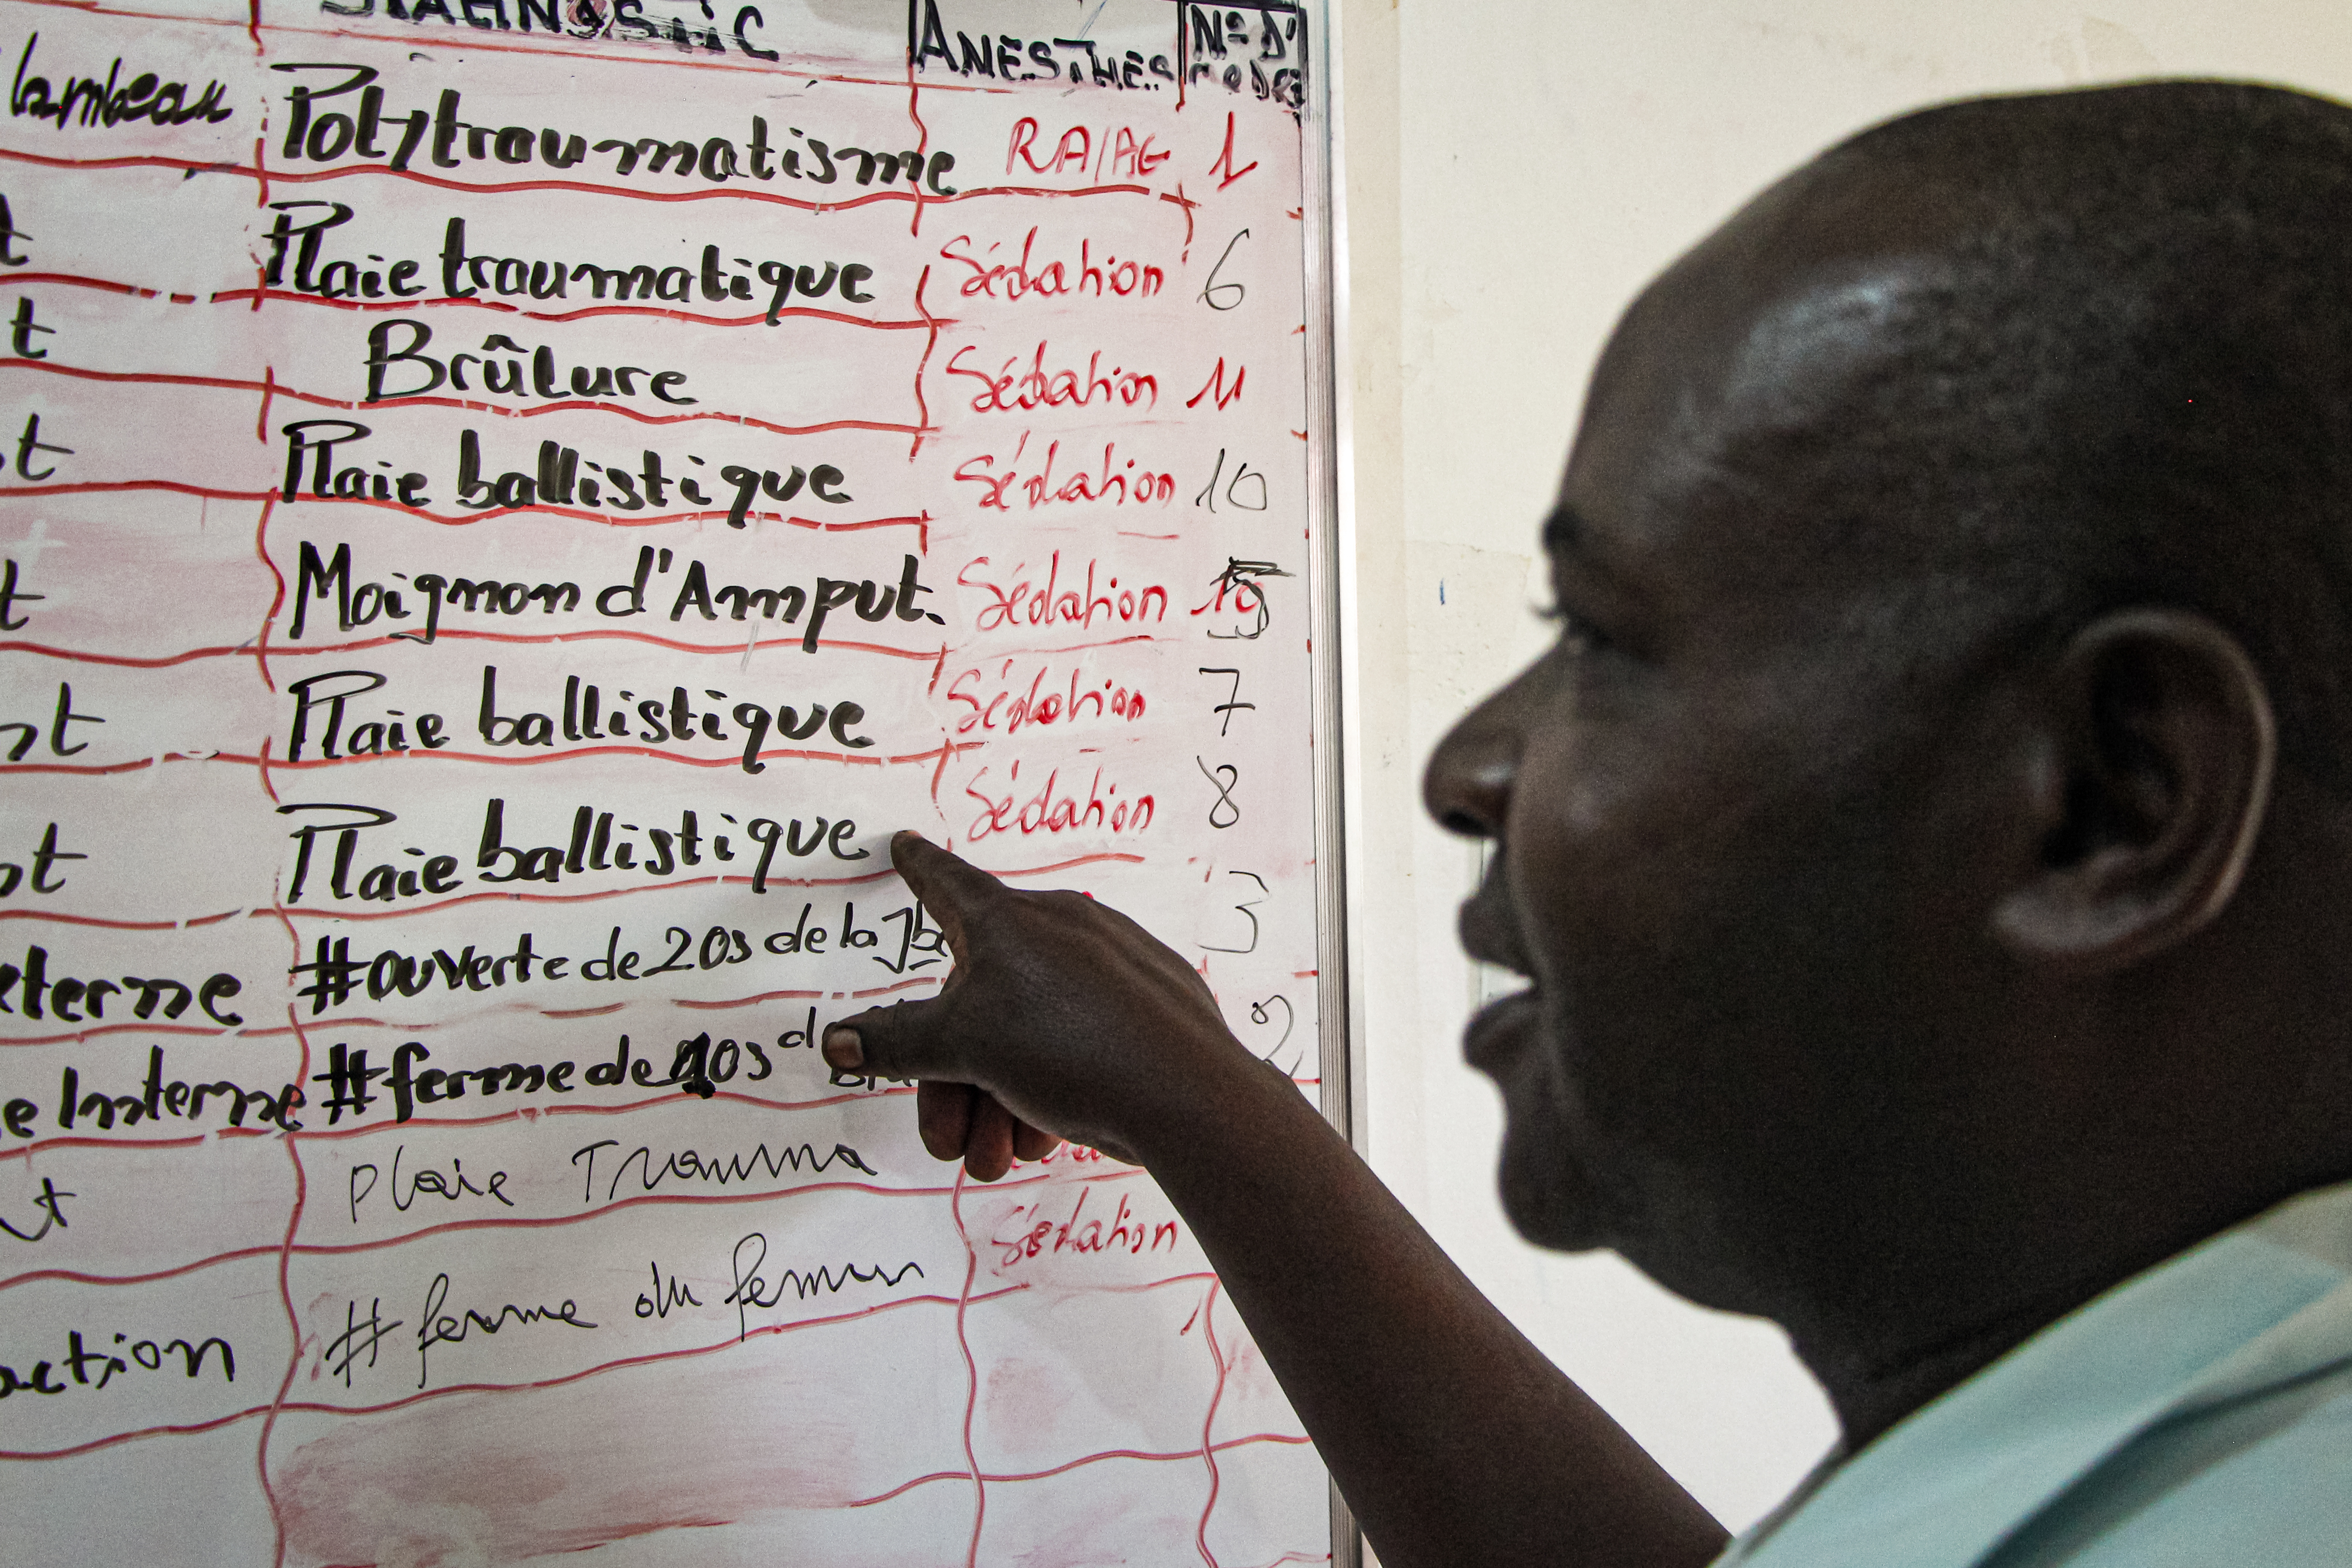 DIAGNOSTIC ANESTHES N° d'
lambeau Polytraumatisme RA/AG 1
t Plaie traumatique Sédation 6
t Brûlure Sédation 11
t Plaie ballistique Sédation 10
t Moignon d'Amput. Sédation
nt Plaie ballistique Sédation 7
nt Plaie ballistique Sédation 8
terne #ouverte de 2 os de la Jbe
e Interne #ferme de os d
t Plaie Trauma
action #ferme du femur Sédation